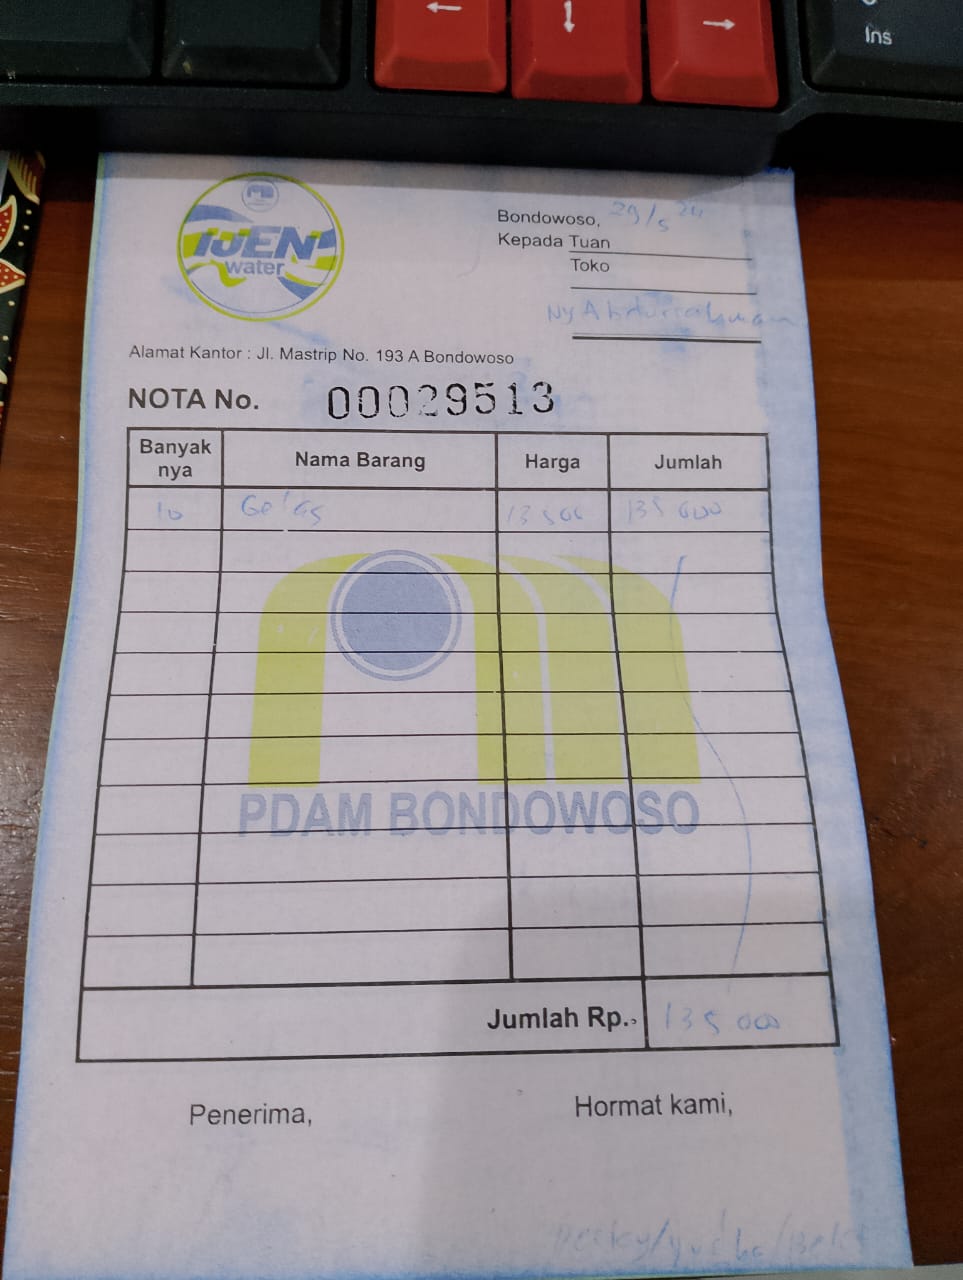 Ins
IJEN
water
Bondowoso, 29/5 24
Kepada Tuan
Toko
Ny Abdurrahman
Alamat Kantor : Jl. Mastrip No. 193 A Bondowoso
NOTA No. 00029513
Banyak nya Nama Barang Harga Jumlah
10 Gelas 13 500 135 000
PDAM BONDOWOSO
Jumlah Rp. 135 000
Penerima, Hormat kami,